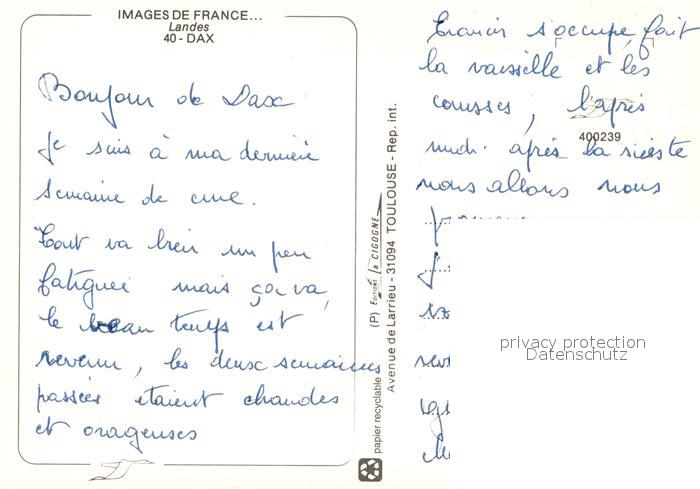 IMAGES DE FRANCE...
Landes
40 - DAX
Bonjour de Dax
Je suis à ma dernière
semaine de cure.
Tout va bien un peu
fatiguée mais ça va,
le beau temps est
revenu, les deux semaines
passées étaient chaudes
et orageuses
papier recyclable
(P) Editions la CIGOGNE
Avenue de Larrieu - 31094 TOULOUSE - Rep. int.
Francis s'occupe, fait
la vaisselle et les
courses, l'après
400239
midi après la sieste
nous allons nous
privacy protection
Datenschutz